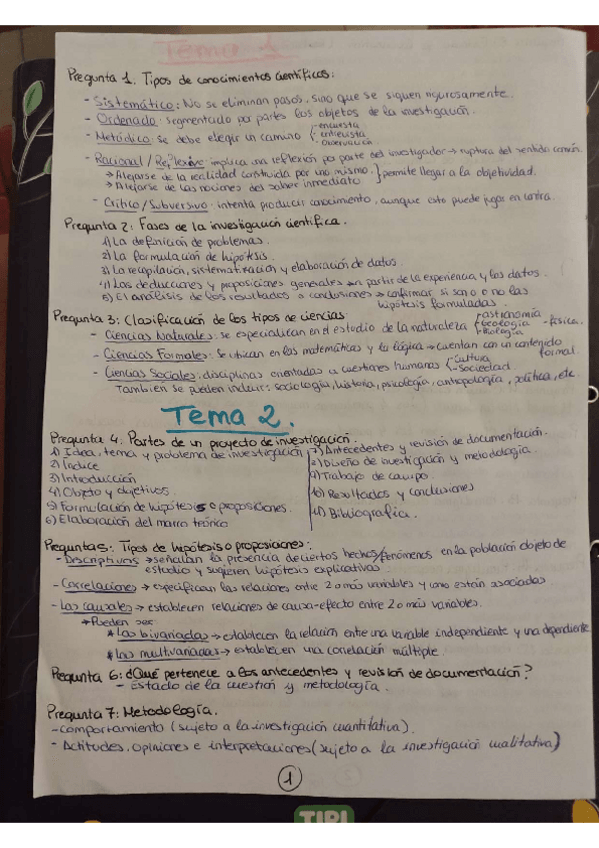 Tema 1
Pregunta 1. Tipos de conocimientos científicos:
- Sistemático: No se eliminan pasos, sino que se siguen rigurosamente.
- Ordenado: segmentado por partes los objetos de la investigación.
- Metódico: se debe elegir un camino encuesta entrevista Observación
- Racional / Reflexivo: implica una reflexión por parte del investigador → ruptura del sentido común.
→ Alejarse de la realidad construida por uno mismo. } permite llegar a la objetividad.
→ Alejarse de las nociones del saber inmediato
- Crítico / Subversivo: intenta producir conocimiento, aunque esto puede jugar en contra.
Pregunta 2: Fases de la investigación científica.
1) La definición de problemas.
2) La formulación de hipótesis.
3) La recopilación, sistematización y elaboración de datos.
4) Las deducciones y proposiciones generales → a partir de la experiencia y los datos.
5) El análisis de los resultados o conclusiones → confirmar si son o no las
hipótesis formuladas.
Pregunta 3: Clasificación de los tipos de ciencias
- Ciencias Naturales: se especializan en el estudio de la naturaleza astronomía Geología Biología - física.
- Ciencias Formales: se utilizan en las matemáticas y la lógica → cuentan con un contenido
formal.
- Ciencias Sociales: disciplinas orientadas a cuestiones humanas cultura sociedad
También se pueden incluir: sociología, historia, psicología, antropología, política, etc.
Tema 2.
Pregunta 4: Partes de un proyecto de investigación.
1) Idea, tema y problema de investigación
2) Índice
3) Introducción
4) Objeto y objetivos.
5) Formulación de hipótesis o proposiciones.
6) Elaboración del marco teórico
7) Antecedentes y revisión de documentación.
8) Diseño de investigación y metodología.
9) Trabajo de campo.
10) Resultados y conclusiones
11) Bibliografía.
Pregunta 5: Tipos de hipótesis o proposiciones:
- Descriptivos → señalan la presencia de ciertos hechos/fenómenos en la población objeto de
estudios y sugieren hipótesis explicativas.
- Correlaciones → especifican las relaciones entre 2 o más variables y como están asociadas
- Las causales → establecen relaciones de causa-efecto entre 2 o más variables.
* Pueden ser
* Las bivariadas → establecen la relación entre una variable independiente y una dependiente.
* Las multivariadas → establecen una correlación múltiple.
Pregunta 6: ¿Qué pertenece a los antecedentes y revisión de documentación?
- Estado de la cuestión y metodología.
Pregunta 7: Metodología.
- Comportamiento (sujeto a la investigación cuantitativa).
- Actitudes, opiniones e interpretaciones (sujeto a la investigación cualitativa)
1